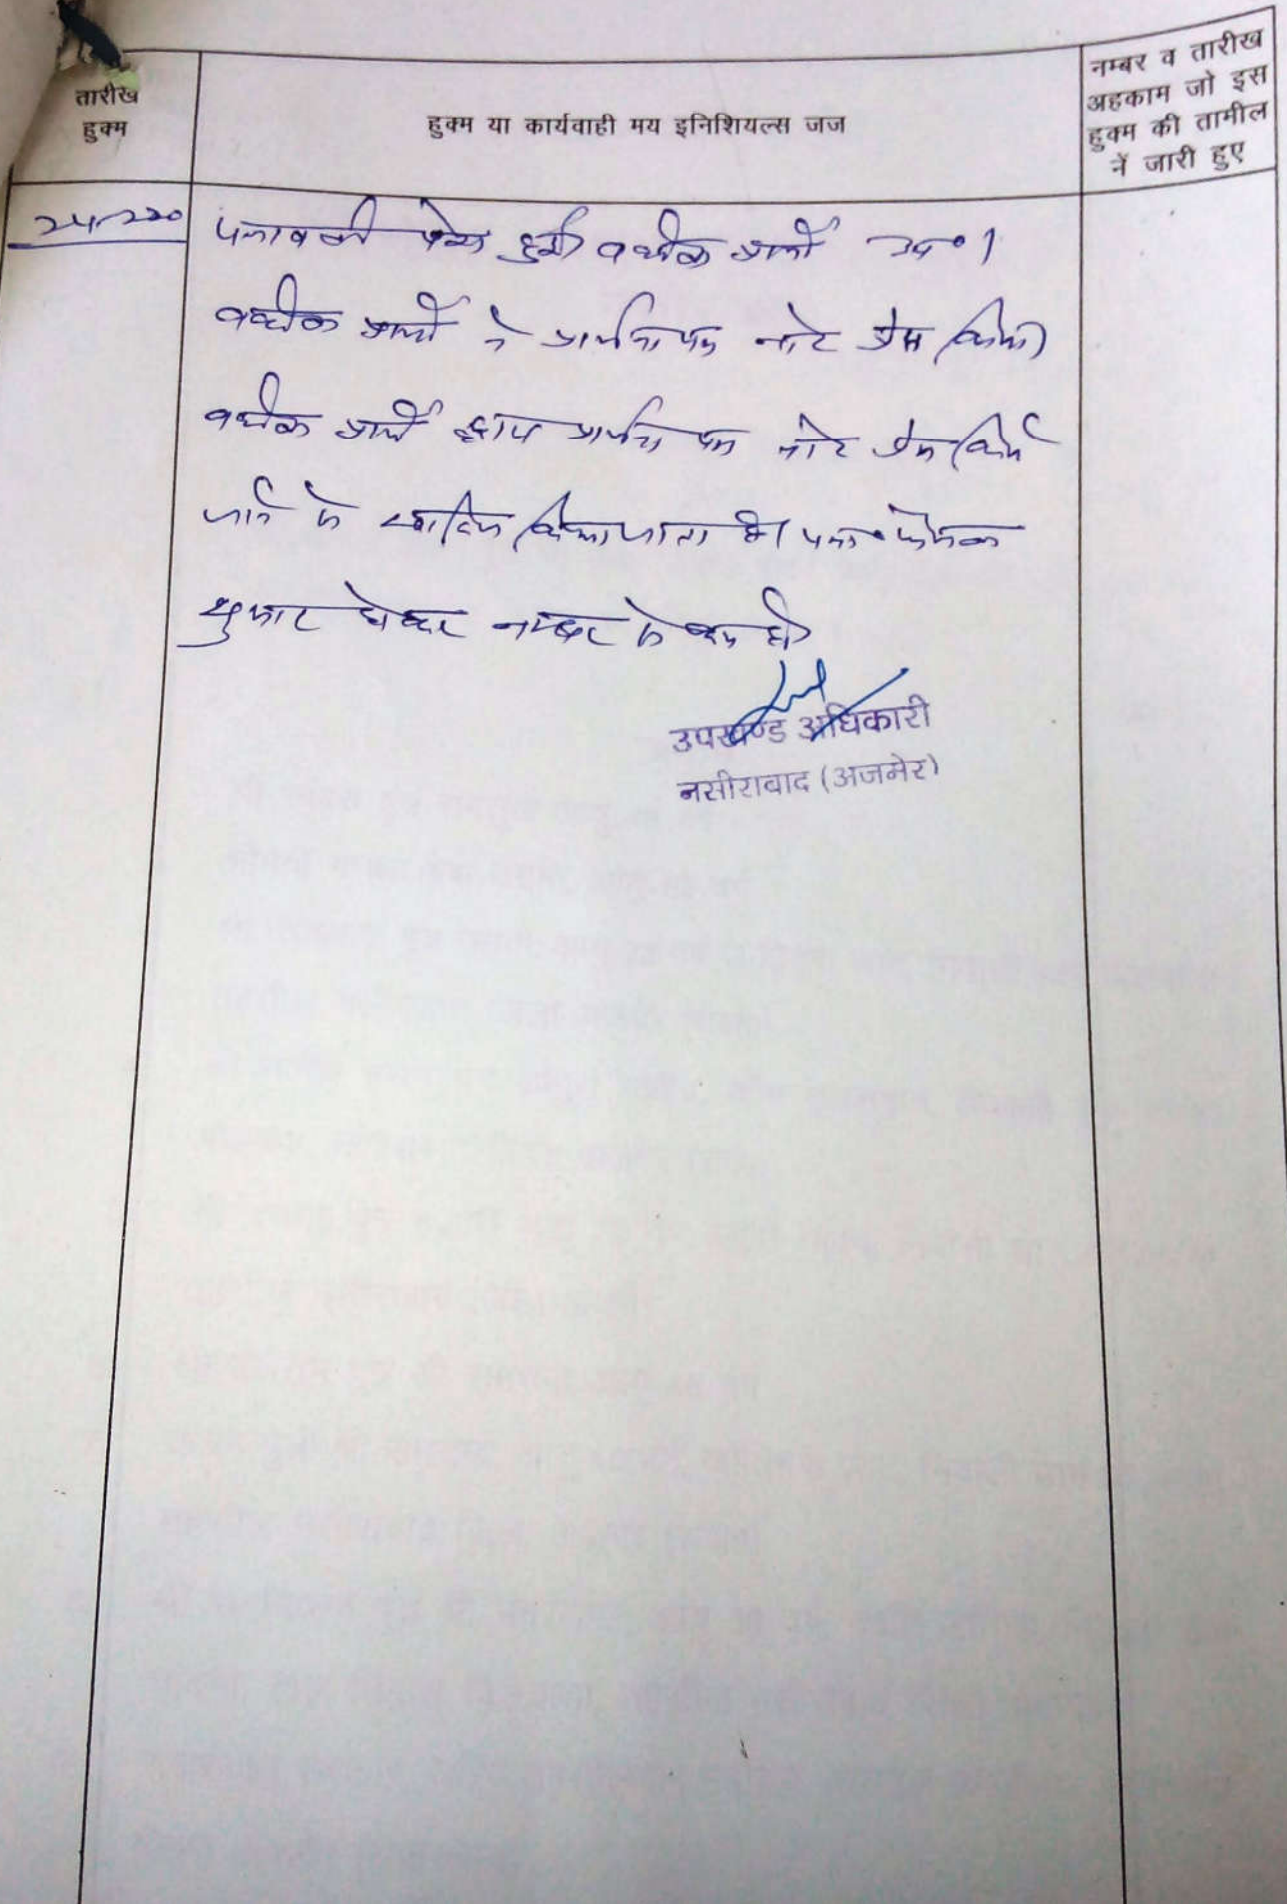 तारीख
हुक्म
हुक्म या कार्यवाही मय इनिशियल्स जज
नम्बर व तारीख
अहकाम जो इस
हुक्म की तामील
नें जारी हुए
पत्रावली पेश हुई। वकील प्रार्थी उप०।
वकील प्रार्थी ने प्रार्थना पत्र नोट प्रेस किया।
वकील प्रार्थी द्वारा प्रार्थना पत्र नोट प्रेस किये
जाने से खारिज किया जाता है। पत्रा० फैसल
शुमार होकर नम्बर से कम हो।
उपखण्ड अधिकारी
नसीराबाद (अजमेर)